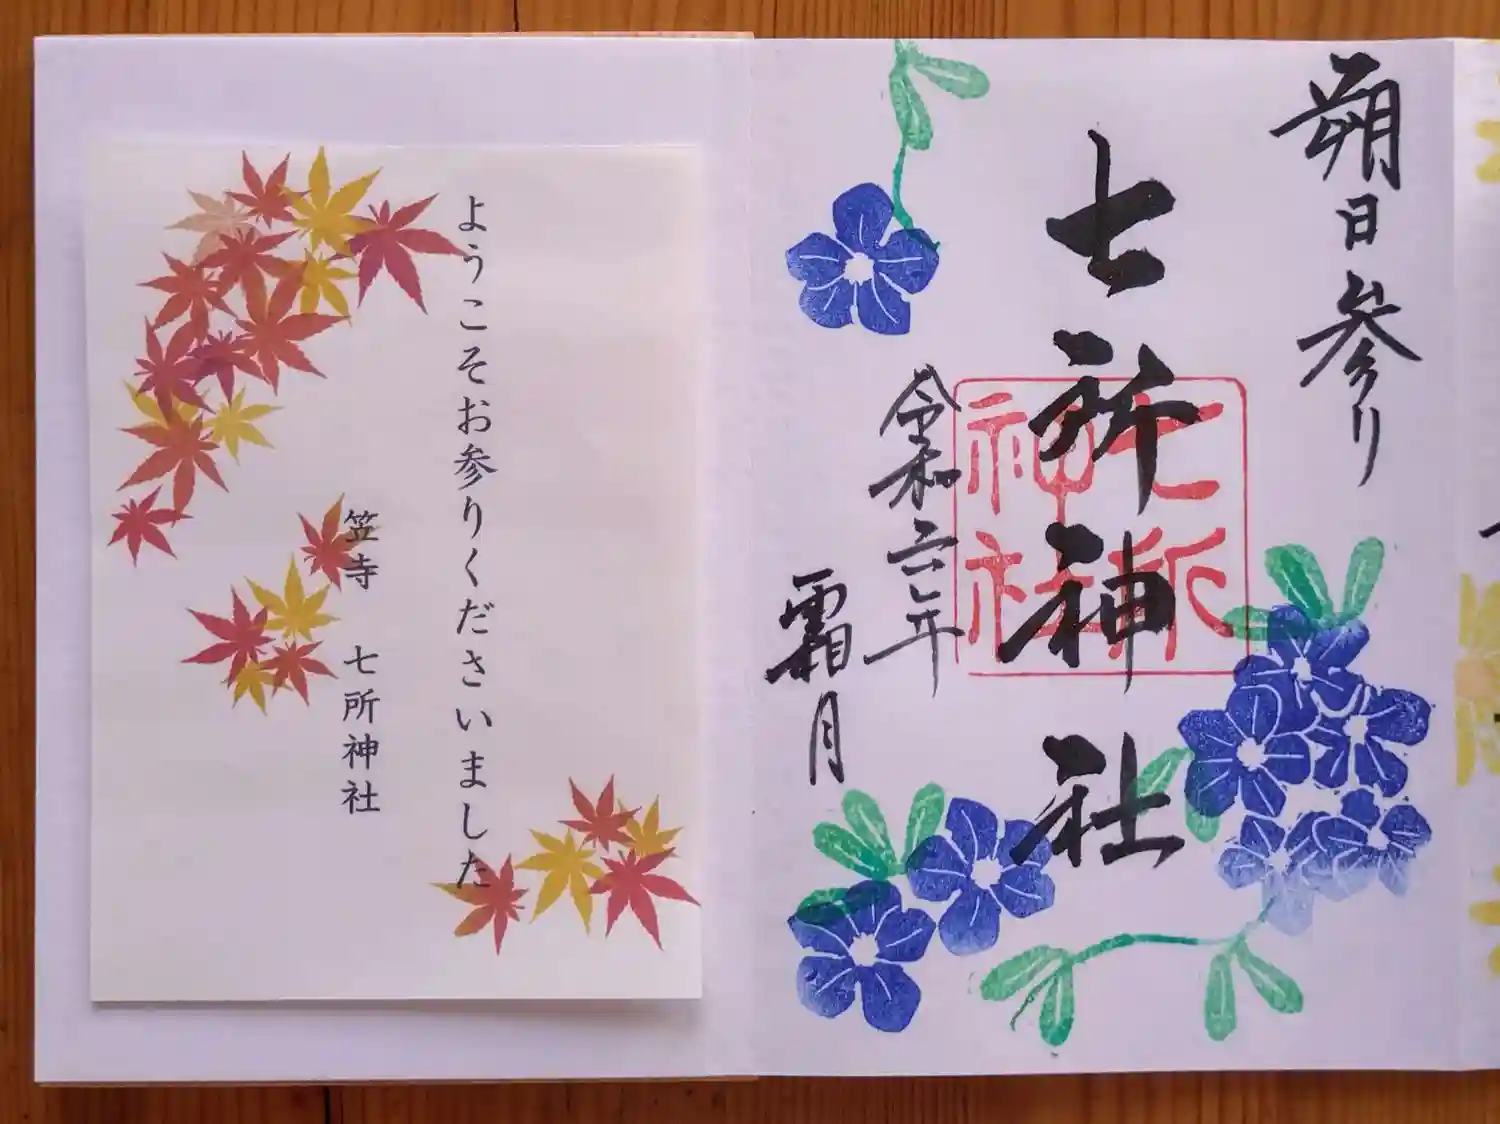 朔日参り
七所神社
七所
神社
令和六年
霜月
ようこそお参りくださいました
笠寺 七所神社